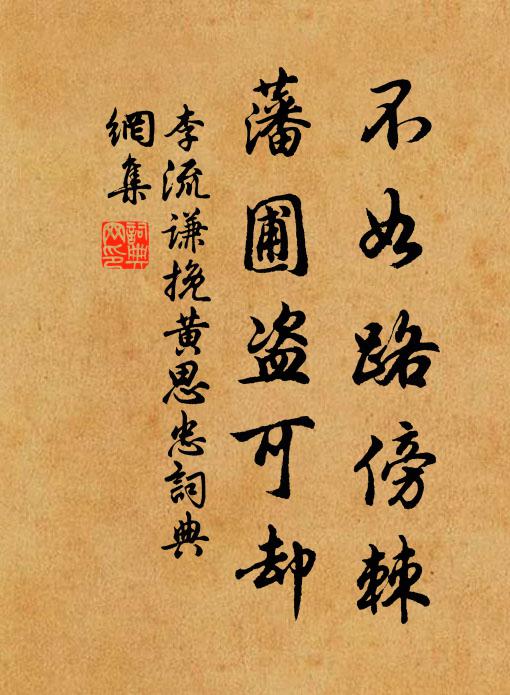 不如路傍棘
藩圃盗可却
李流谦挽黄思忠詞典
網集
詞典網印